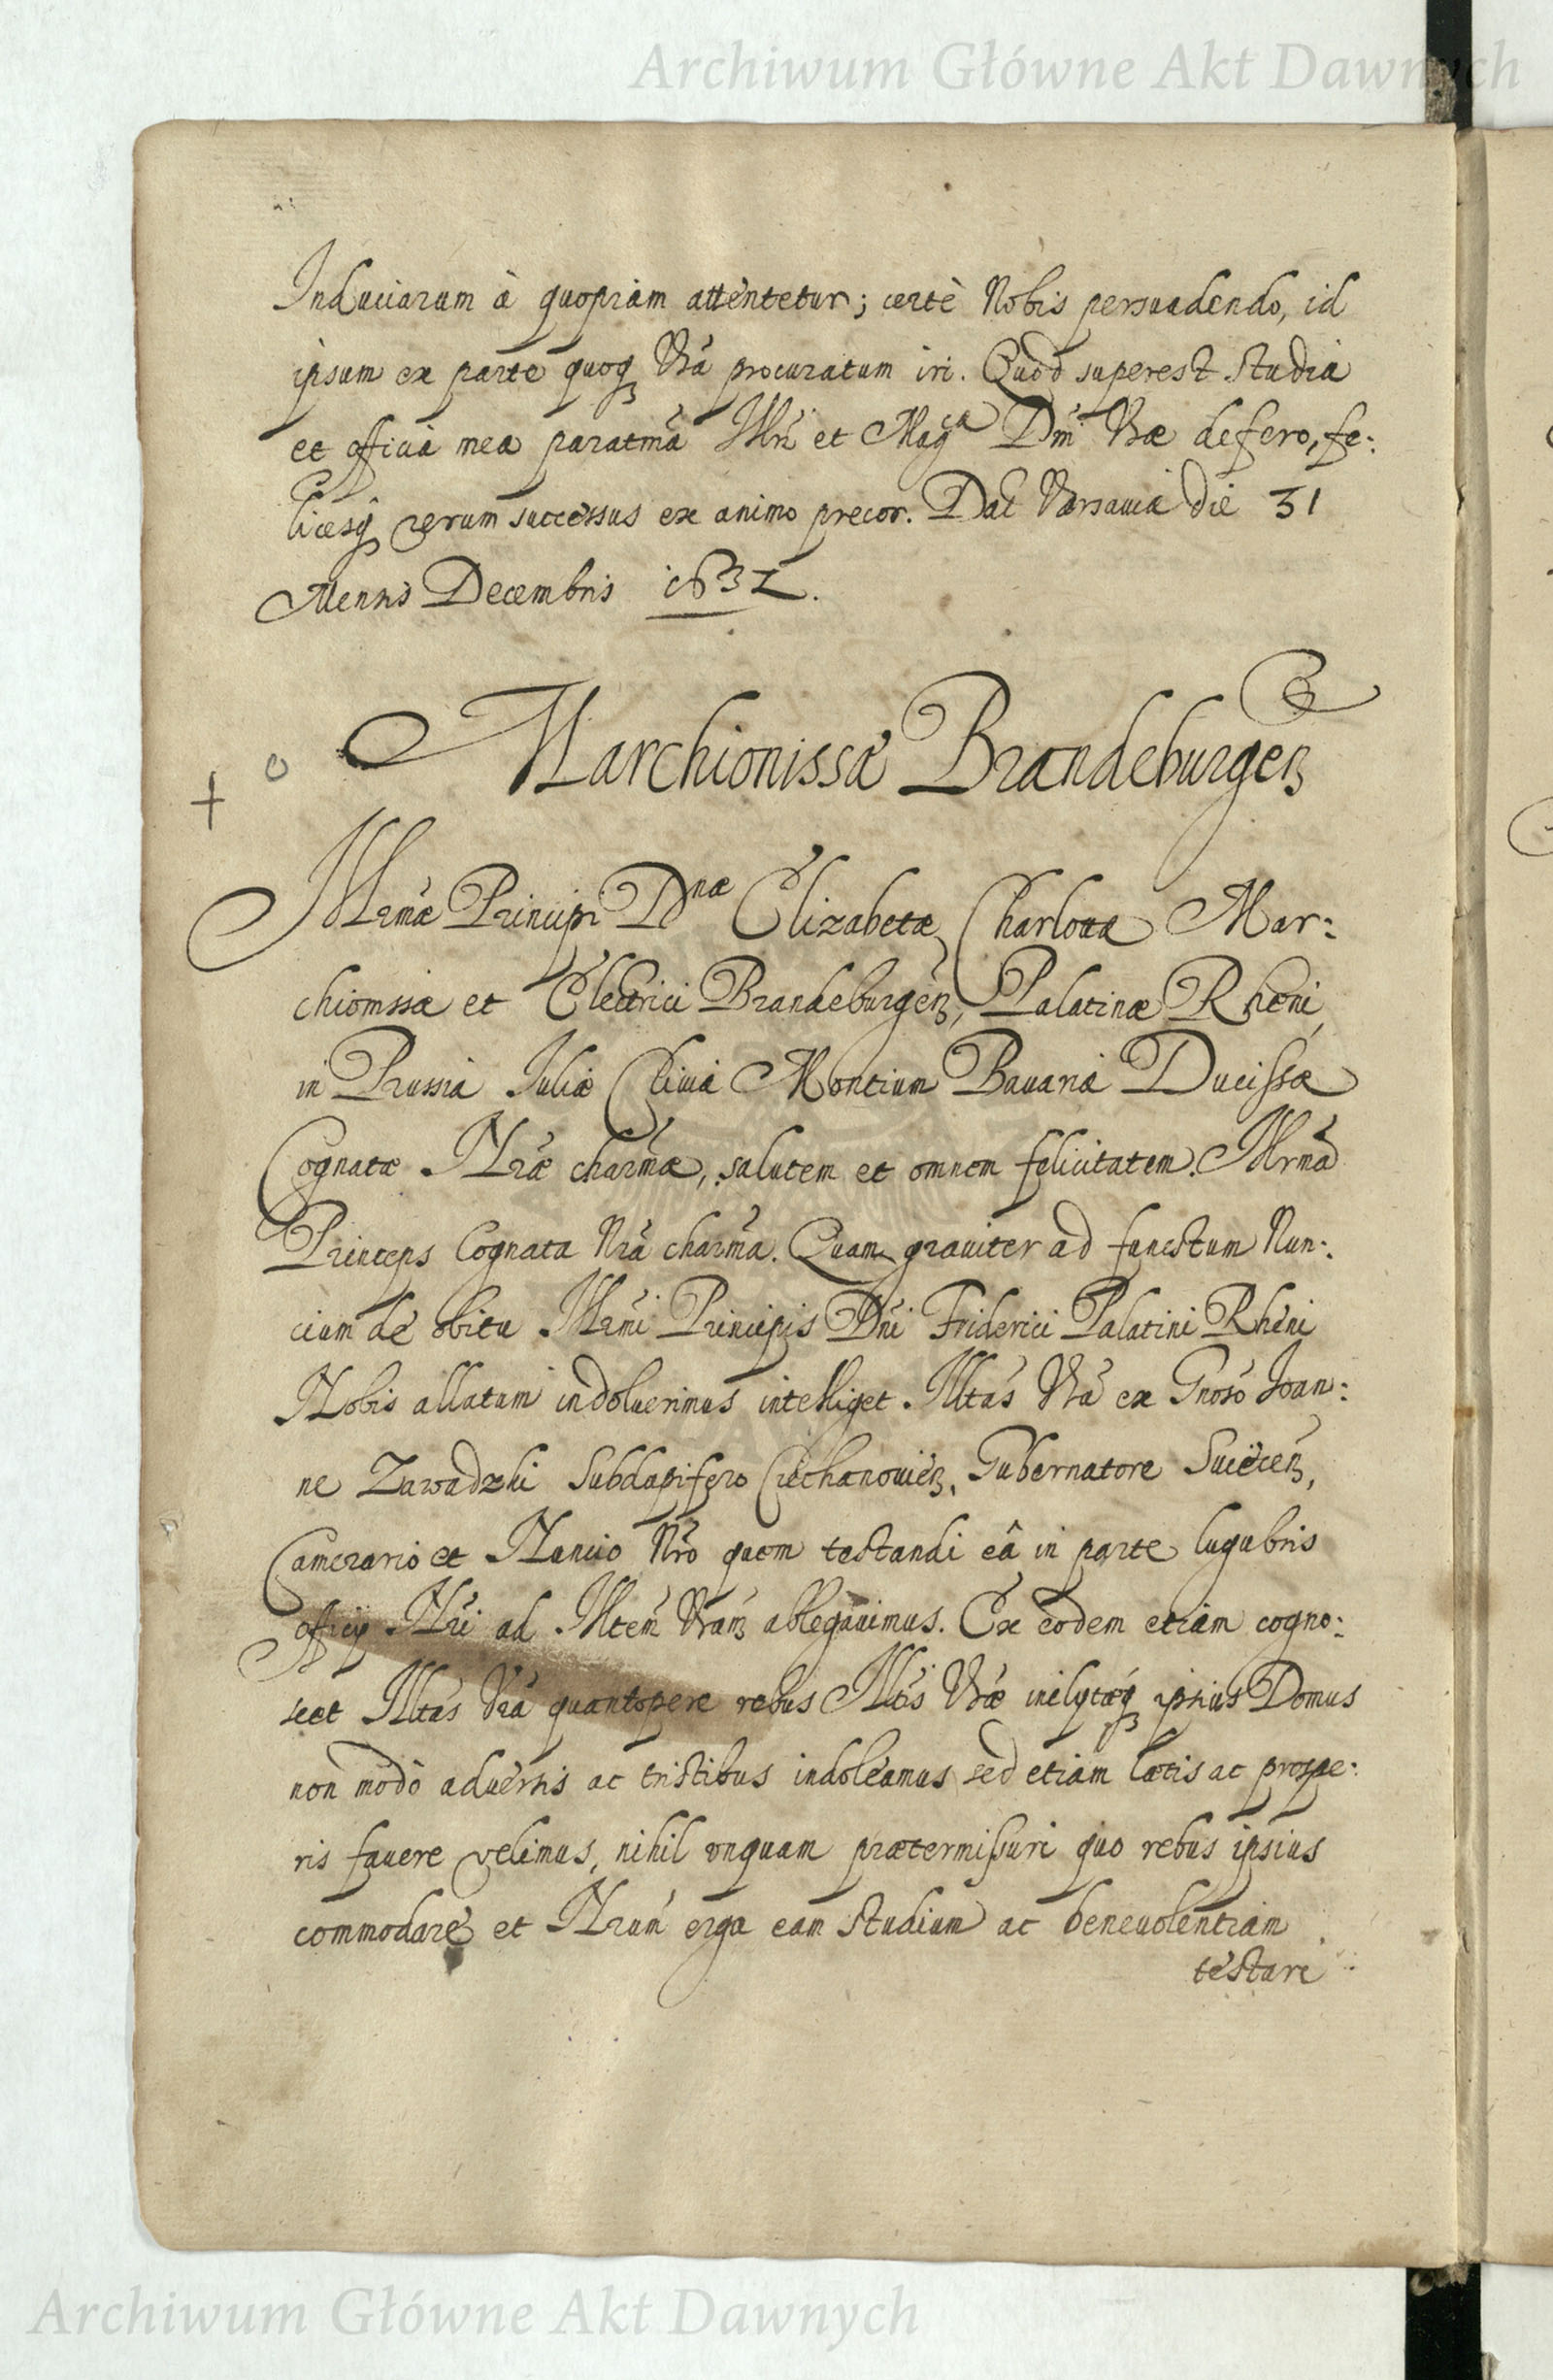 Archiwum Główne Akt Dawnych
Induciarum à quopiam attentetur; certè Nobis persuadendo, id
ipsum ex parte quoq₃ Vrã procuratum iri. Quod superest studia
et officia mea paratmã Illri et Mag^ca Dni Vræ defero, fe:
licesq₃ rerum successus ex animo precor. Dat Varsauiæ die 31
Mensis Decembris 1632.
Marchionissæ Brandeburgen₃
Illrmæ Principi D^næ Elizabetæ Charlottæ Mar:
chionissæ et Electrici Brandeburgen₃, Palatinæ Rheni,
in Prussia Juliæ Cliuiæ Montium Bauariæ Ducissæ
Cognatæ Nræ charmæ, salutem et omnem felicitatem. Illrma
Princeps Cognata Nrã charma. Quam grauiter ad funestum Nun:
cium de obitu Illrmi Principis Dni Friderici Palatini Rheni
Nobis allatum indoluerimus intelliget Illtas Vrã ex Gnoso Joan:
ne Zawadzki Subdapifero Ciechanouien₃, Gubernatore Suiecen₃,
Camerario et Nuncio Nro quem testandi eâ in parte lugubris
officij Nri ad Illtem Vram ablegauimus. Ex eodem etiam cogno:
scet Illtas Vrã quantopere rebus Illtis Vræ inclytæq₃ ipsius Domus
non modò aduersis ac tristibus indoleamus sed etiam lætis ac prospe:
ris fauere velimus, nihil vnquam prætermissuri quo rebus ipsius
commodare et Nrum erga eam studium ac beneuolentiam
testari
Archiwum Główne Akt Dawnych